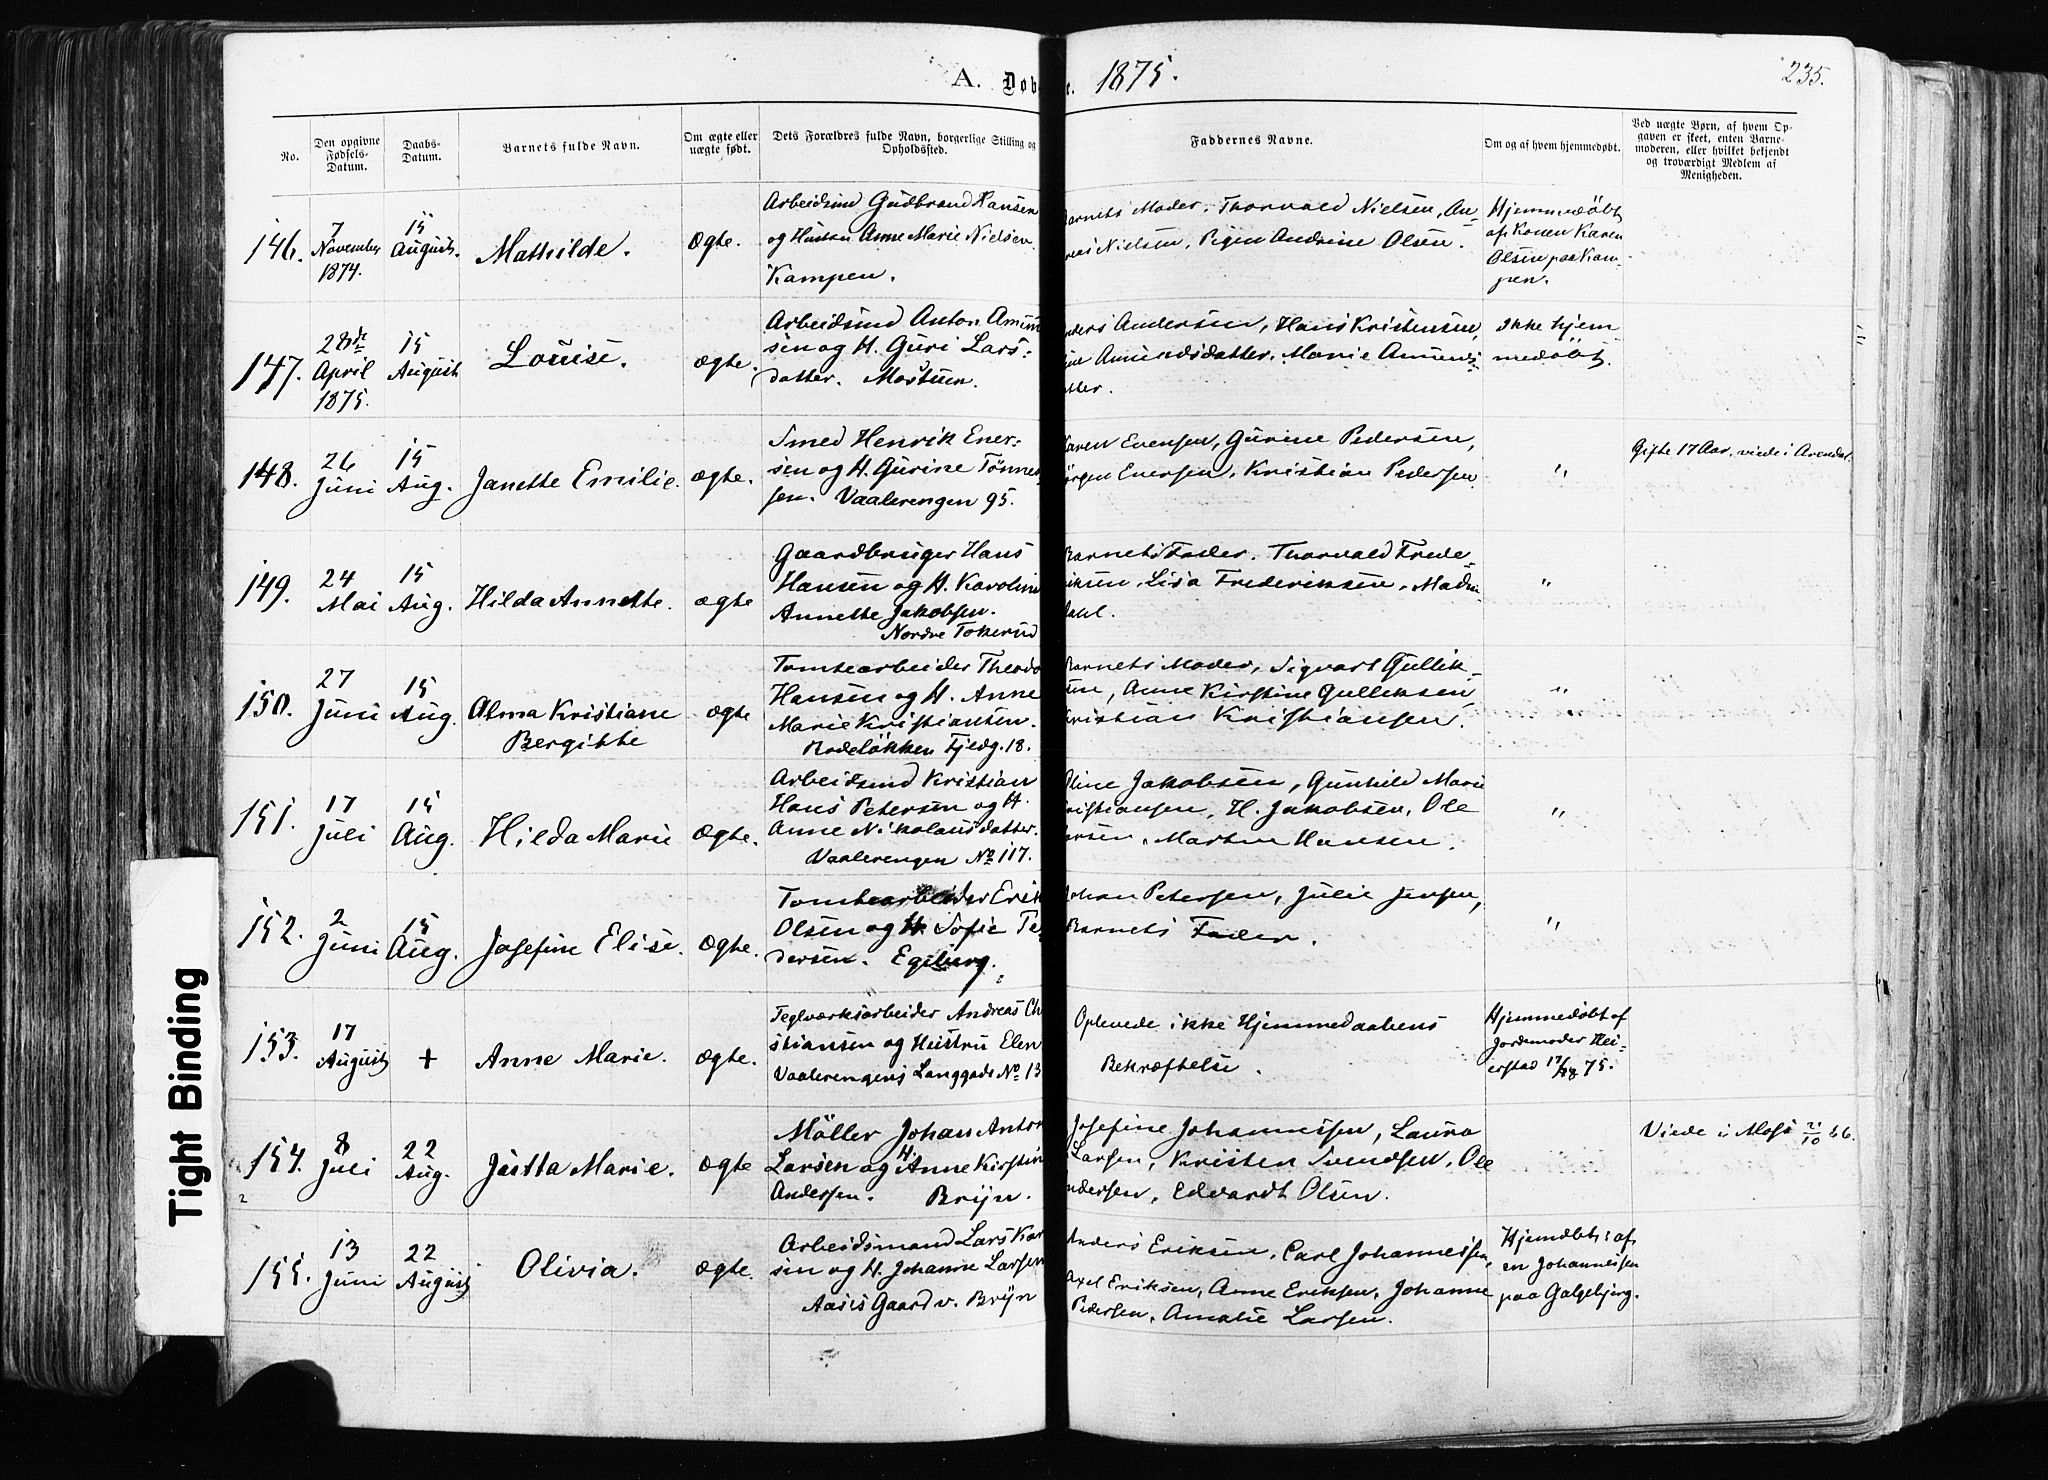 A. Døb
e. 1875.
235.
No.
Den opgivne Fødsels-Datum.
Daabs-Datum.
Barnets fulde Navn.
Om ægte eller uægte født.
Dets Forældres fulde Navn, borgerlige Stilling og Opholdssted.
Faddernes Navne.
Om og af hvem hjemmedøbt.
Ved uægte Børn, af hvem Opgaven er skeet, enten Barnemoderen, eller hvilket bekjendt og troværdigt Medlem af Menigheden.
146.
7 November 1874.
15 August.
Mathilde.
Ægte.
Arbeidsmd Gudbrand Hansen
og Hustru Anne Marie Nielsen.
Kampen.
arnets Moder, Thorvald Nielsen, An=
reas Nielsen, Pigen Andrine Olsen.
Hjemmedøbt
af Konen Karen
Olsen paa Kam=
pen.
147.
28de April 1875.
15 August
Louise.
ægte.
Arbeidsmd Anton Amun
sen og H. Guri Lars=
datter. Mostuen.
nders Andersen, Hans Kristensen,
Amundsdatter, Marie Amunds=
atter.
Ikke hjem
medøbt.
148.
26 Juni
15 Aug.
Janette Emilie.
ægte.
Smed Henrik Ener=
sen og H. Gurine Tönnes
sen. Vaalerengen 95.
aren Evensen, Gurine Pedersen,
örgen Enersen, Kristian Pedersen.
"
Gifte 17 Aar, viede i Arendal.
149.
24 Mai
15 Aug.
Hilda Annette.
ægte
Gaardbruger Hans
Hansen og H. Karoline
Annette Jakobsen.
Nordre Tokerud
Barnets Fader, Thorvald Frede=
riksen, Lisa Frederiksen, Mads
dahl.
"
150.
27 Juni
15 Aug.
Alma Kristiane
Bergitte
ægte
Tomtearbeider Theodo
Hansen og H. Anne
Marie Kristiansen.
Rodeløkken Fjeldg. 18.
Barnets Moder, Sigvart Gullik=
sen, Anne Kirstine Gulliksen
Kristian Kristiansen.
"
151.
17 Juli
15 Aug.
Hilda Marie
Ægte.
Arbeidsmd Kristian
Hans Petersen og H.
Anne Nikolausdatter.
Vaalerengen No 117.
Oline Jakobsen, Gunhild Marie
ristiansen, H. Jakobsen, Ole
arsen, Martin Hansen.
"
152.
2 Juni
15 Aug.
Josefine Elise.
Ægte.
Tomtearbeider Erik
Olsen og H. Sofie Pe=
dersen. Egeberg.
Johan Petersen, Julie Jensen,
Barnets Fader.
"
153.
17 August
+
Anne Marie.
Ægte.
Teglværksarbeider Andreas Ch
stiansen og Hustru Elen
Vaalerengens Langgade No 13
Oplevede ikke Hjemmedaabens
Bekræftelse.
Hjemmedøbt af
Jordemoder Hei=
erstad 17/8 75.
154.
8 Juli
22 Aug.
Jutta Marie.
Ægte
Möller Johan Anton
Larsen og H. Anne Kirstin
Andersen. Bryn.
Josefine Johannessen, Laura
Larsen, Kristen Svendsen, Ole
ndersen, Edvardt Olsen.
Viede i Moss 21/10 66.
155.
13 Juni
22 August
Olivia.
ægte.
Arbeidsmand Lars Kar
sen og H. Johanne Larsen
Aases Gaard v. Bryn
Anders Eriksen, Carl Johannessen,
Axel Eriksen, Anne Eriksen, Johanne
Pedersen, Amalie Larsen.
Hjemdøbt: af
en Johannessen
paa Galgebjerg.
Tight Binding